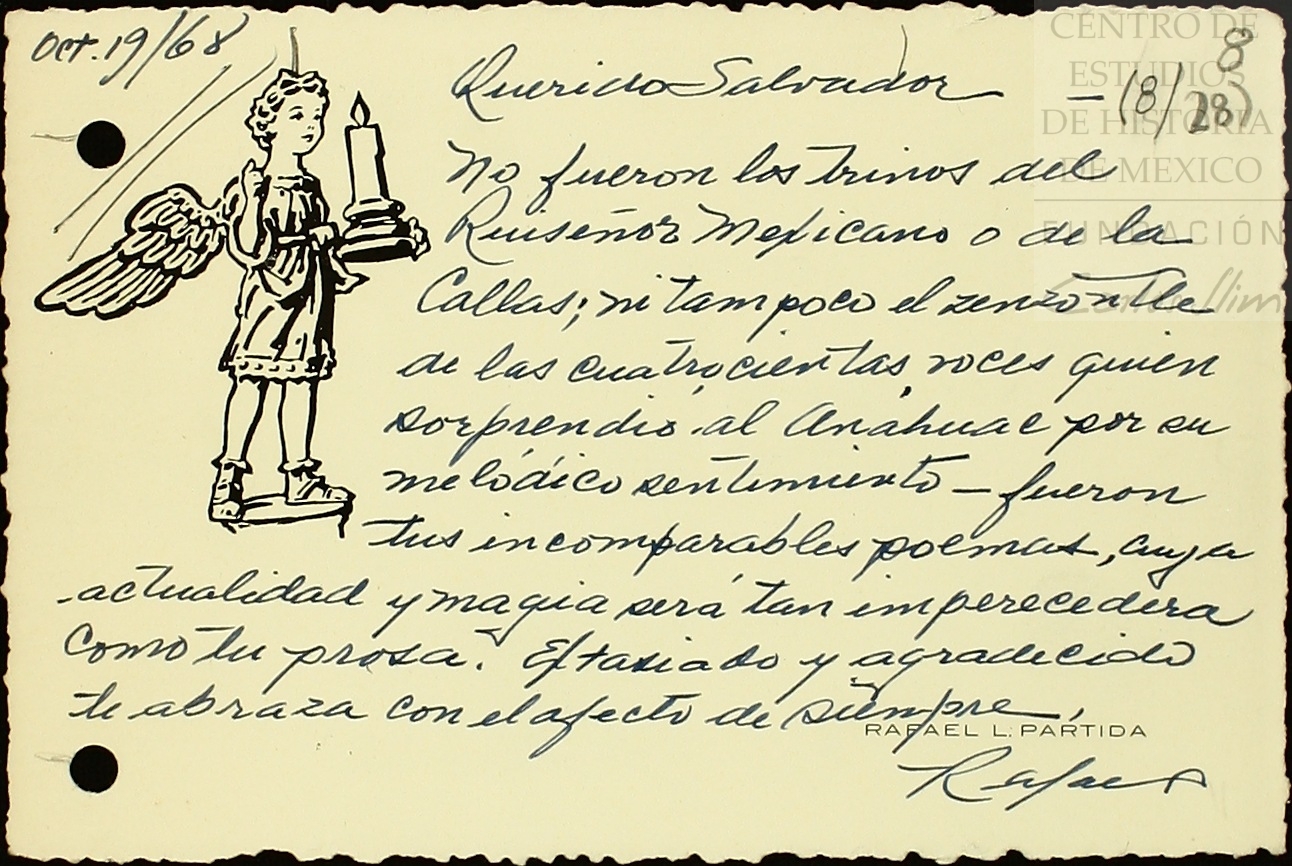 Oct. 19/68
CENTRO DE
ESTUDIOS
DE HISTORIA
DE MEXICO
FUNDACIÓN
8
Querido Salvador — (8/28)
No fueron los trinos del
Ruiseñor Mexicano o de la
Callas; ni tampoco el zenzontle
de las cuatrocientas voces quien
sorprendió al Anáhuac por su
melódico sentimiento — fueron
tus incomparables poemas, cuya
actualidad y magia será tan imperecedera
como tu prosa. Extasiado y agradecido
te abraza con el afecto de siempre,
RAFAEL L. PARTIDA
Rafael